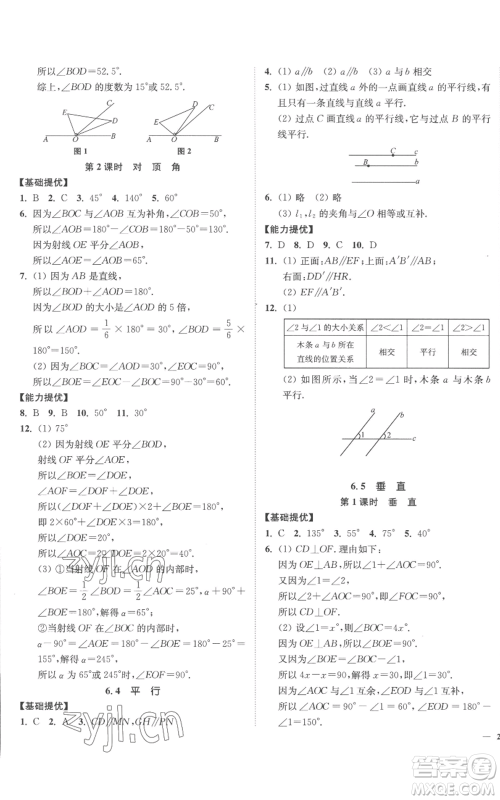 所以∠BOD=52.5°.
综上,∠BOD 的度数为 15°或 52.5°.
C
E
D
A
O
B
图1
E
C
D
A
O
B
图2
第 2 课时 对 顶 角
【基础提优】
1. B 2. C 3. 45° 4. 140° 5. 60°
6. 因为∠BOC 与∠AOB 互为补角,
所以∠BOC=180°−∠AOB.
因为∠BOC=∠AOB+50°,
所以 180°−∠AOB=∠AOB+50°.
所以∠AOB=65°.
7. (1) 因为 AB 是直线,
所以∠BOD+∠AOD=180°.
因为∠BOD 的大小是∠AOD 的 5 倍,
所以∠AOD=1/6×180°=30°,∠BOD=5/6×180°=150°.
(2) 因为∠BOC=∠AOD=30°,∠EOF=90°,
所以∠COF=90°−30°=60°.
【能力提优】
8. B 9. B 10. 50° 11. 30°
12. (1) 75°
(2) 因为射线 OE 平分∠BOD,
射线 OF 平分∠AOE,
所以∠BOE=∠DOE,
∠AOF=∠DOF+∠DOE.
因为∠AOF+∠EOF+∠BOE=180°,
所以∠DOF+∠DOE+∠DOF+∠DOE+
∠BOE=180°,
即 2×60°+∠DOE×3=180°.
所以∠BOE=∠DOE=20°.
所以∠AOC=20°×2=40°.
(3) ①当射线 OF 在∠AOD 的内部时,
∠BOE=1/2∠BOD=1/2∠AOC=25°,α+90°+
∠BOE=180°,解得 α=65°;
②当射线 OF 在∠BOC 的内部时,
α−90°=∠AOE−90°=180°−∠BOE−90°=
180°−25°−90°,解得 α=155°.
所以 α 为 65°或 155°.
6.4 平 行
【基础提优】
1. C 2. A 3. CD∥MN,GH∥PN
4. (1) a∥b (2) a∥b (3) a 与 b 相交
5. (1) 如图,过直线 a 外的一点画直线 a 的平行线,有
且只有一条直线与直线 a 平行.
(2) 过点 C 画直线 a 的平行线,它与过点 B 的平
行线平行.
C
B
a
6. (1) 略 (2) 略
(3) l₁,l₂ 的夹角与∠O 相等或互补.
【能力提优】
7. D 8. D 9. C 10. D
11. (1) 正面:AB∥EF;上面:A′B′∥AB;
右面:DD′∥HR.
(2) EF∥A′B′.
12. (1)
∠2 与∠1 的大小关系 ∠2<∠1 ∠2=∠1 ∠2>∠1
木条 a 与 b 所在
直线的位置关系 相交 平行 相交
(2) 如图所示,当∠2=∠1 时,木条 a 与木条 b
平行.
a b
1 2
6.5 垂 直
第 1 课时 垂 直
【基础提优】
1. C 2. 135° 3. 55° 4. 75° 5. 40°
6. (1) CD⊥OF.理由如下:
因为 OE⊥AB,
所以∠1+∠AOC=90°.
因为∠1=∠2,
所以∠2+∠AOC=90°.
所以 CD⊥OF.
(2) 设∠1=x°,
因为∠BOC=4∠1,
所以∠BOC=4x°.
因为∠BOC−∠1=90°,
所以 4x−x=90,解得 x=30.
所以∠1=30°.
因为∠1+∠AOC=90°,
所以∠AOC=90°−30°=60°.
zyjl.cn
zyjl.cn
答案圈
MXQE.COM